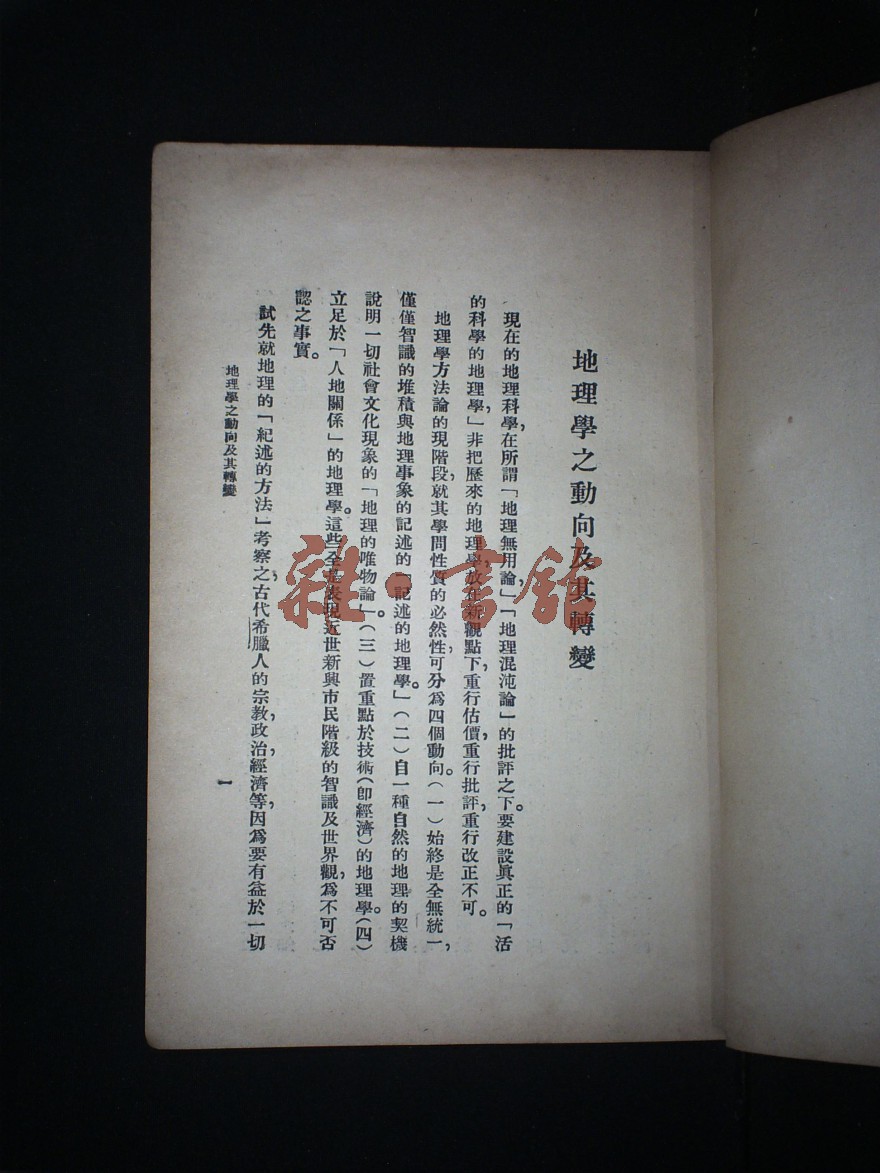 地理學之動向及其轉變
現在的地理科學，在所謂「地理無用論」「地理混沌論」的批評之下。要建設眞正的「活
的科學的地理學，」非把歷來的地理學，放在新觀點下，重行估價，重行批評，重行改正不可。
地理學方法論的現階段，就其學問性質的必然性，可分爲四個動向。（一）始終是全無統一，
僅僅智識的堆積與地理事象的記述的「記述的地理學。」（二）自一種自然的地理的契機
說明一切社會文化現象的「地理的唯物論」。（三）置重點於技術（卽經濟）的地理學。（四）
立足於「人地關係」的地理學。這些全是表現近世新興市民階級的智識及世界觀，爲不可否
認之事實。
試先就地理的「紀述的方法」考察之，古代希臘人的宗教，政治，經濟等，因爲要有益於一切
地理學之動向及其轉變
一
雜·書館